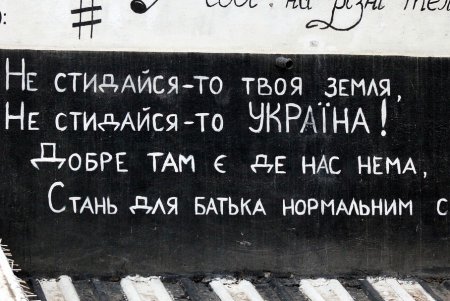 # собі. на різні тем
Не стидайся-то твоя земля,
Не стидайся-то УКРАЇНА!
Добре там є де нас нема,
Стань для батька нормальним с